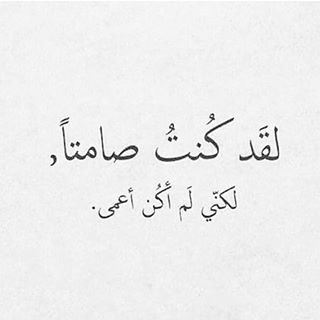 لقَد كُنتُ صامتاً,
لكنّي لَم أَكُن أعمى.